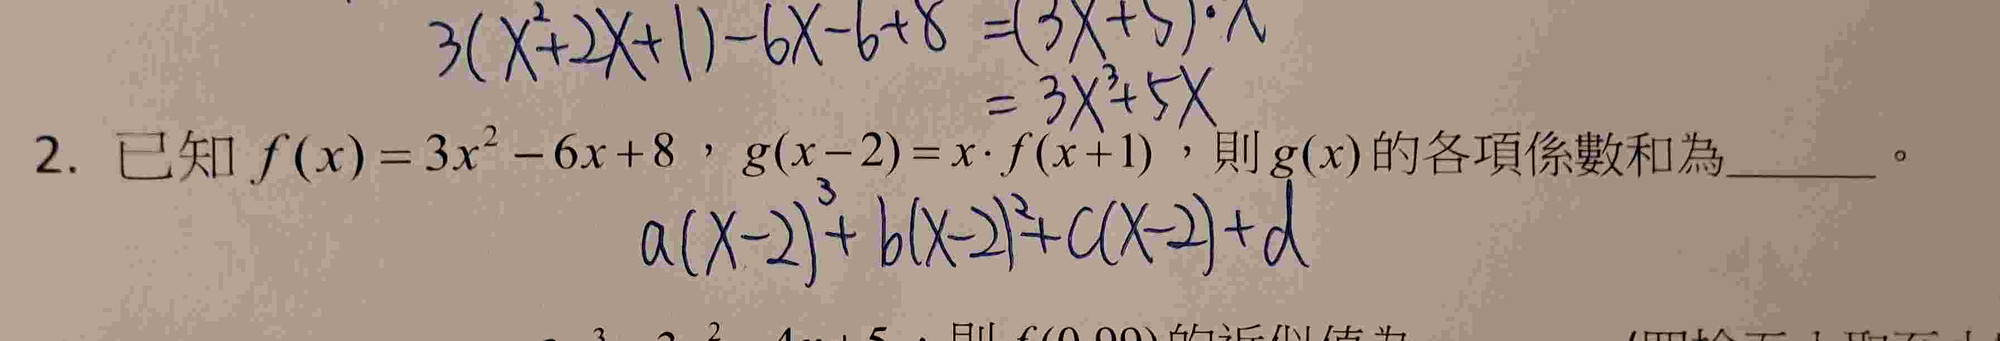 3(x²+2x+1)-6x-6+8 =(3x+5)·x
= 3x³+5x
2. 已知 f(x)=3x²-6x+8，g(x-2)=x·f(x+1)，則 g(x) 的各項係數和為______。
a(x-2)³+b(x-2)²+c(x-2)+d